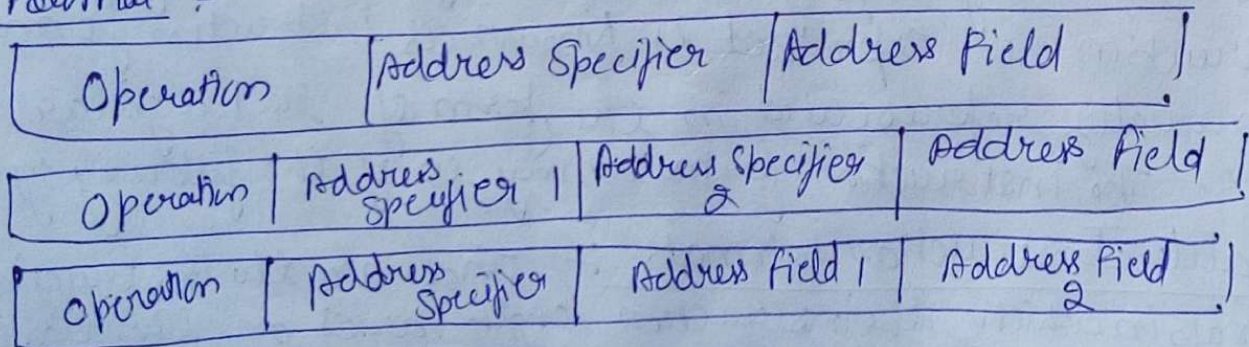 Operation | Address Specifier | Address Field
Operation | Address Specifier 1 | Address Specifier 2 | Address Field
Operation | Address Specifier | Address Field 1 | Address Field 2